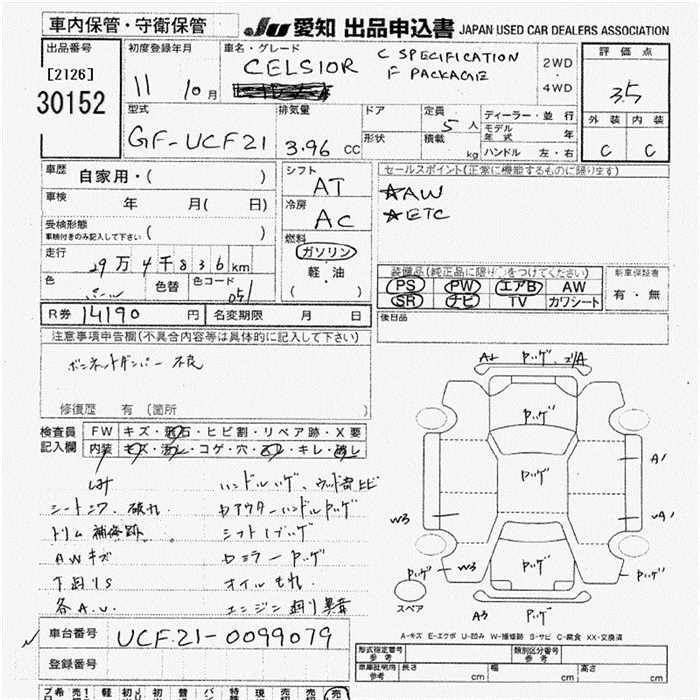 車内保管・守衛保管
JU 愛知 出品申込書 JAPAN USED CAR DEALERS ASSOCIATION
出品番号 初度登録年月 車名・グレード 評価点
[2126] 11 10月 CELSIOR C SPECIFICATION 2WD
30152 F PACKAGE ・ 4WD 3.5
型式 排気量 ドア 定員 5人 ディーラー・並行 外装 内装
GF-UCF21 3.96 CC 形状 積載 kg モデル年式 年 C C
ハンドル 左・右
車歴 自家用・( ) シフト セールスポイント(正常に機能するものに限ります)
AT ☆AW
車検 年 月( 日) 冷房 ☆ETC
受検形態 AC
車検付きのみ記入して下さい ( )
走行 燃料
29万4千836km ガソリン 装備品(純正品に限り○をつけてください) 新車保証書
色 色替 色コード 軽・油 PS PW エアB AW 有・無
パール 051 ( ) SR ナビ TV カワシート
R券 14190 円 名変期限 月 日 後日品
注意事項申告欄(不具合内容等は具体的に記入して下さい)
ボンネットダンパー 不良
修復歴 有 (箇所 )
検査員 FW キズ・飛石・ヒビ割・リペア跡・X要
記入欄 内装 キズ・汚レ・コゲ・穴・スレ・キレ・破レ
ハンドルハゲ、ウッド部ヒビ
シートシワ 破れ アウターハンドルハゲ
トリム 補修跡 シフトノブハゲ
AWキズ ドアミラーハゲ
下廻りS オイルもれ
各A.U. エンジン廻り異音
車台番号 UCF21-0099079
登録番号
A1 ハゲ
ハゲ
ハゲ
A1
W3 UA1
ハゲ W3 ハゲ ハゲ
スペア
A3 ハゲ
A-キズ E-エクボ U-凹み W-補修跡 S-サビ C-腐食 XX-交換済
形式指定番号 参考 類別区分番号 参考
車庫証明用 参考 長さ cm 幅 cm 高さ cm